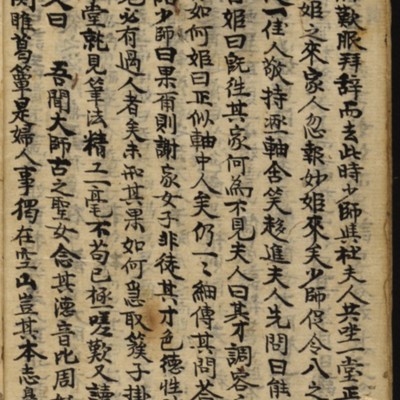 歎服拜辭而去此時少師與杜夫人共坐一堂正
姬之來家人忽報妙姬來矣少師促令入之
一佳人敬持軸含笑趍進夫人先問曰能
姬曰旣徃其家何爲不見夫人曰其才調容
如何姬曰正似軸中人矣仍一一細傳其問答
少師曰果甫則謝家女子非徒其才色德性
必有過人者矣未知其果如何急取簇子掛
堂就見筆法精工一毫不苟已極嗟歎又讀
曰 吾聞大師古之聖女念其德音比周
雎葛覃是婦人事獨在空山豈其本志